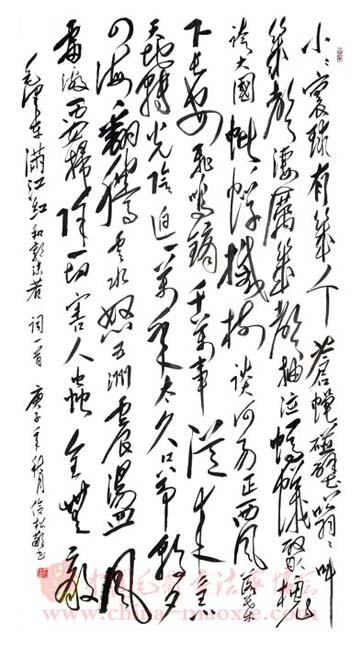 小小寰球有幾个蒼蠅碰壁嗡嗡叫
幾聲凄厲幾聲抽泣螞蟻緣槐
誇大國蚍蜉撼樹談何易正西風落葉
下長安飛鳴鏑千萬事從來急
天地轉光陰迫一萬年太久只爭朝夕
四海翻騰雲水怒五洲震盪風
雷激要掃除一切害人蟲全無敵
毛澤東滿江紅和郭沫若詞一首庚子年秋月